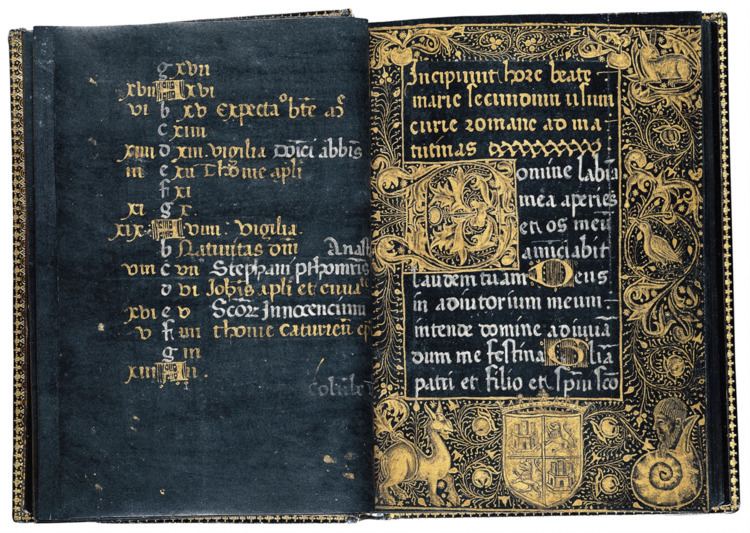 g xvii
xvi
vi b xv Expectaº bte
c xiiii
xiiii d xiii vigilia Dnici abbis
iii e xii Thome apli
f xi
xi g x
xix viiii vigilia
b Nativitas dni Anast
viii c vii Stephani pthomris
d vi Johis apli et
xvi e v Scorz Innocencium
v f iiii thome caturien ep
g iii
xiii ii
Incipiunt hore beate
marie secundum usum
curie romane ad ma
tutinas
Domine labia
mea aperies
et os meu
anunciabit
laudem tuam Deus
in adiutorium meum
intende domine adiuva
dum me festina Glia
patri et filio et spiui sco